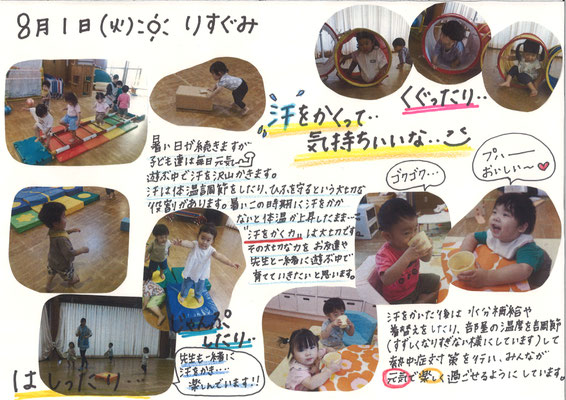 8月1日(火) りすぐみ
汗をかくって‥
気持ちいいな‥
くぐったり‥
暑い日が続きますが
子ども達は毎日元気!
遊ぶ中で汗を沢山かきます。
汗は体温調節をしたり、ひふを守るという大切な
役割があります。暑いこの時期に汗をかか
ないと体温が上昇したまま…
"汗をかく力"は大切です。
その大切な力をお友達や
先生と一緒に遊ぶ中で
育てていきたいと思います。
ゴクゴク…
プハー
おいしい〜♡
じゃんぷ
したり‥
先生も一緒に
汗をかき…
楽しんでいます!!
はしったり…
汗をかいた後は水分補給や
着替えをしたり、部屋の温度を調節
(すずしくなりすぎない様にしています)して
熱中症対策を行い、みんなが
元気で楽しく過ごせるようにしています。